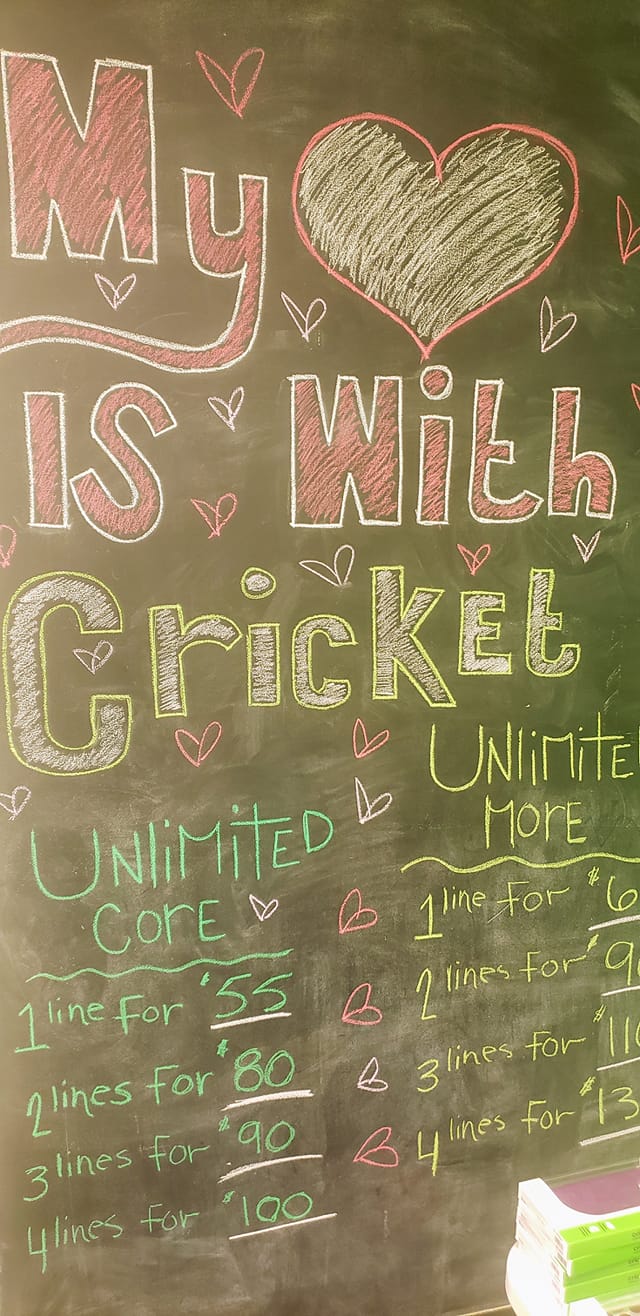 My
IS With
Cricket
UNLIMITED
CORE
1 line for $55
2 lines for $80
3 lines for $90
4 lines for $100
UNLIMITE
MORE
1 line for $6
2 lines for $9
3 lines for $11
4 lines for $13